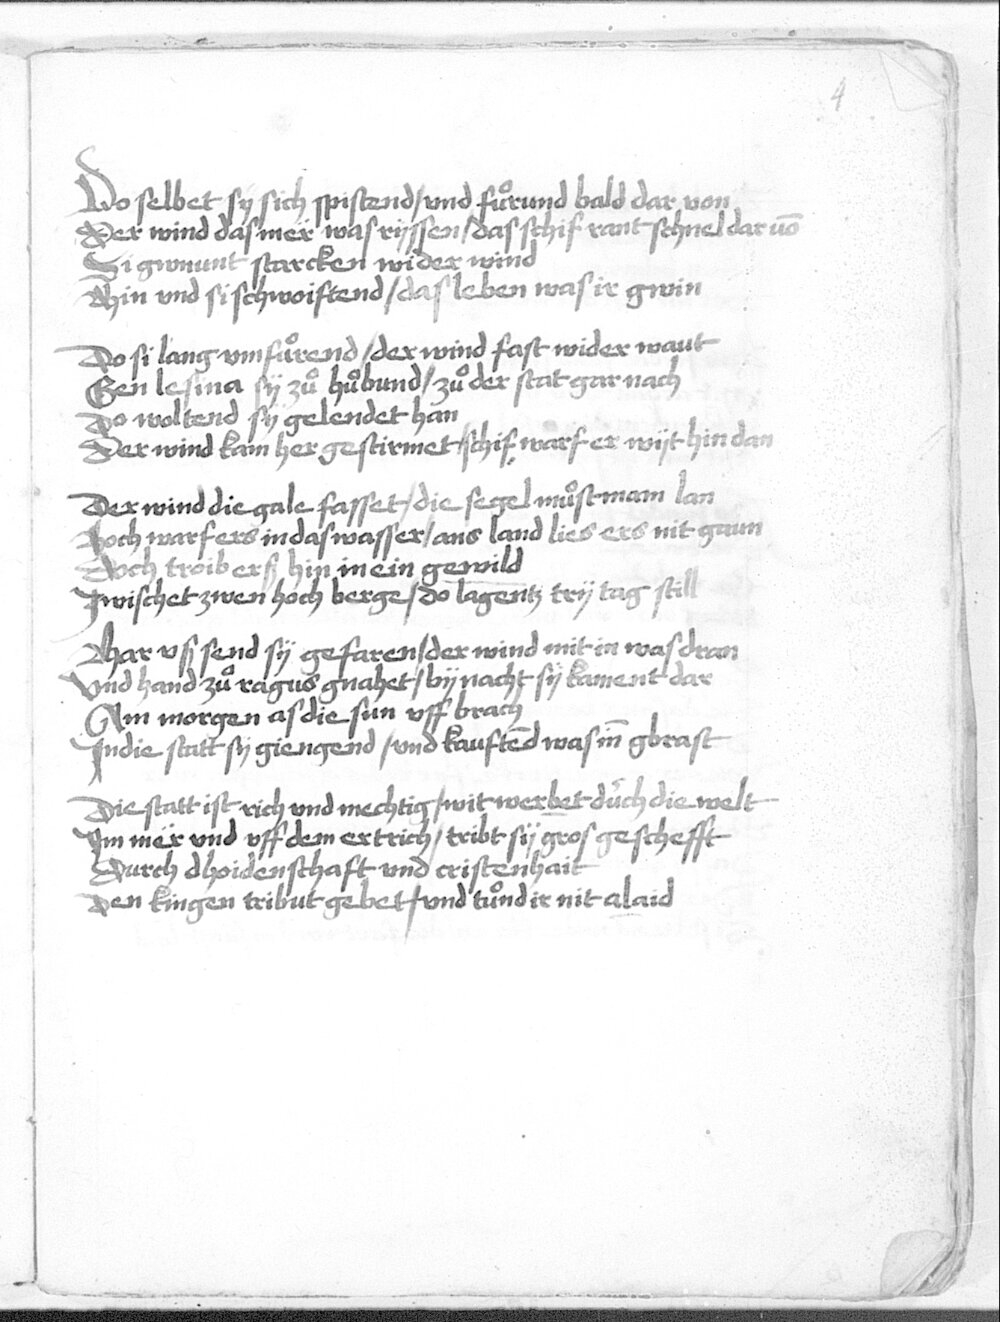 4
Do selbet sÿ sich spistend / und fuͦrund bald dar von
Der wind das mër was ryssen / das schif rant schnel dar vō
Si gwnunt starcken wider wind
Ahin vnd si schwoiftend / das leben was ir gwin
Do si lang vmfuͦrend / der wind fast wider waut
Gen lesina sÿ zuͦ huͦbund / zuͦ der stat gar nach
Do woltend sÿ gelendet han
Der wind kam her gestirmet / schif warf er wÿt hin dan
Der wind die gale fasset / die segel muͦst mam lan
Hoch warf ers in das wasser / ans land lies ers nit gaun
Doch troib erß hin in ein gewild
Zwischet zwen hoch berge / do lagentz try tag still
Ahar vß send sÿ gefaren / der wind mit in was dran
Vnd hand zuͦ ragus gnahet / bÿ nacht sÿ kament dar
Am morgen as die sun vff brach
In die statt sy giengend / vnd kauftēd was in̄ gbrast
Die statt ist rich vnd mechtig / wit werbet durch die welt
Im mër vnd vff dem ertrich / tribt sÿ gros geschefft
Durch dhoidenschaft vnd cristenhait
Den kingen tribut gebet / vnd tuͦnd ir nit alaid